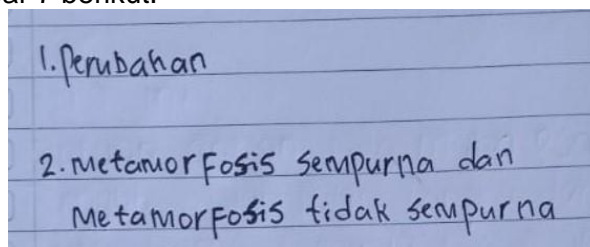 1. Perubahan
2. Metamorfosis sempurna dan
Metamorfosis tidak sempurna